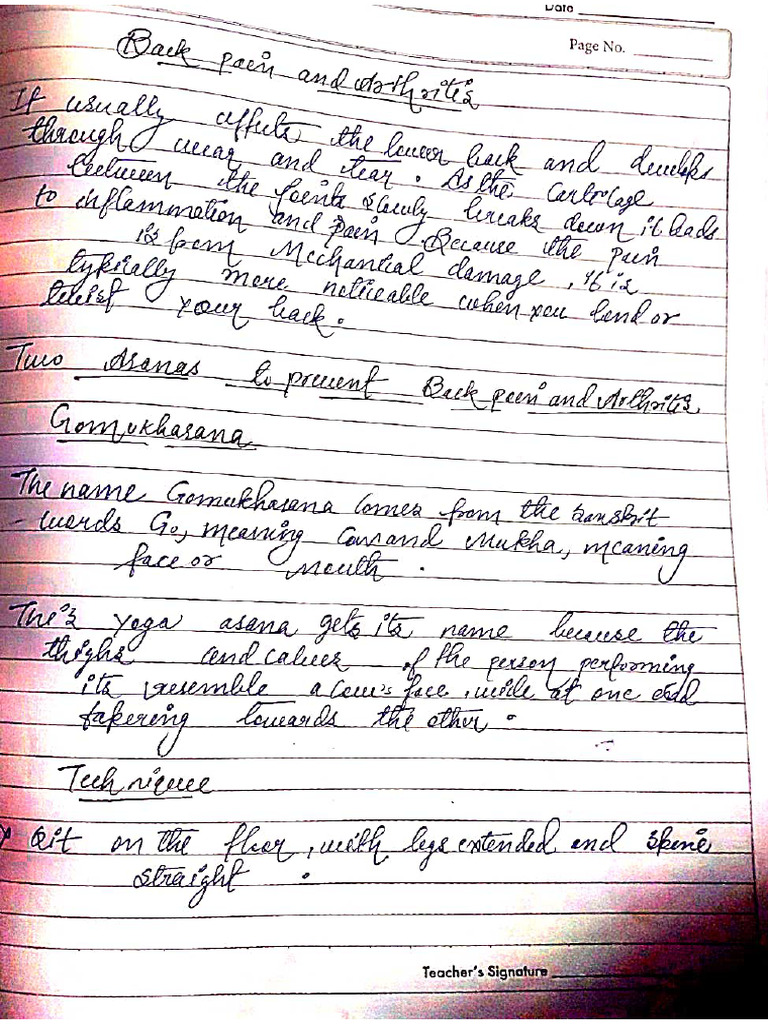 Date
Page No.
Back pain and Arthritis
It usually affects the lower back and develops
through wear and tear. As the Cartilage
between the joints slowly breaks down it leads
to inflammation and pain. Because the pain
is from Mechanical damage, it is
typically more noticeable when you bend or
twist your back.
Two Asanas to prevent Back pain and Arthritis
Gomukhasana
The name Gomukhasana comes from the Sanskrit
words Go, meaning Cow and Mukha, meaning
face or mouth.
This yoga asana gets its name because the
thighs and calves of the person performing
its resemble a cow's face, wide at one end
tapering towards the other.
Technique
Sit on the floor, with legs extended and spine
straight.
Teacher's Signature